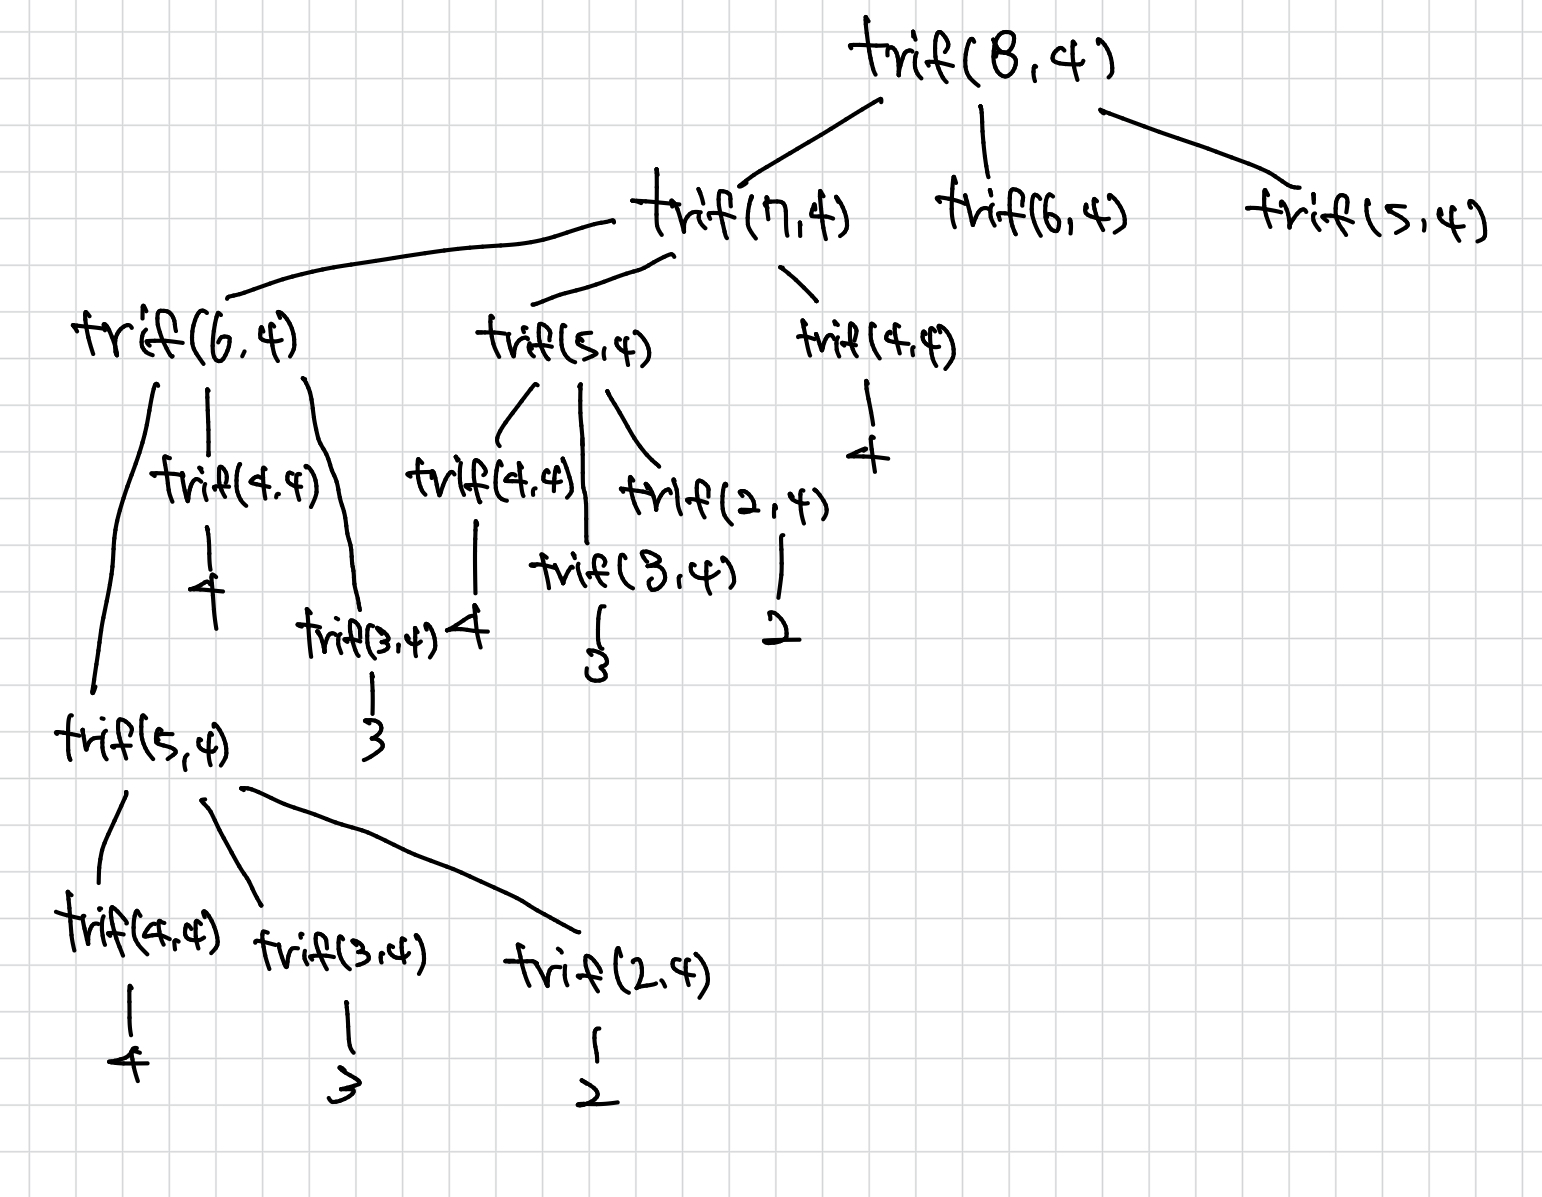 trif(8,4)
trif(7,4) trif(6,4) trif(5,4)
trif(6,4) trif(5,4) trif(4,4)
4
trif(4,4) trif(4,4) trif(2,4)
4 trif(3,4)
trif(3,4) 4 3 2
3
trif(5,4)
trif(4,4) trif(3,4) trif(2,4)
4 3 2